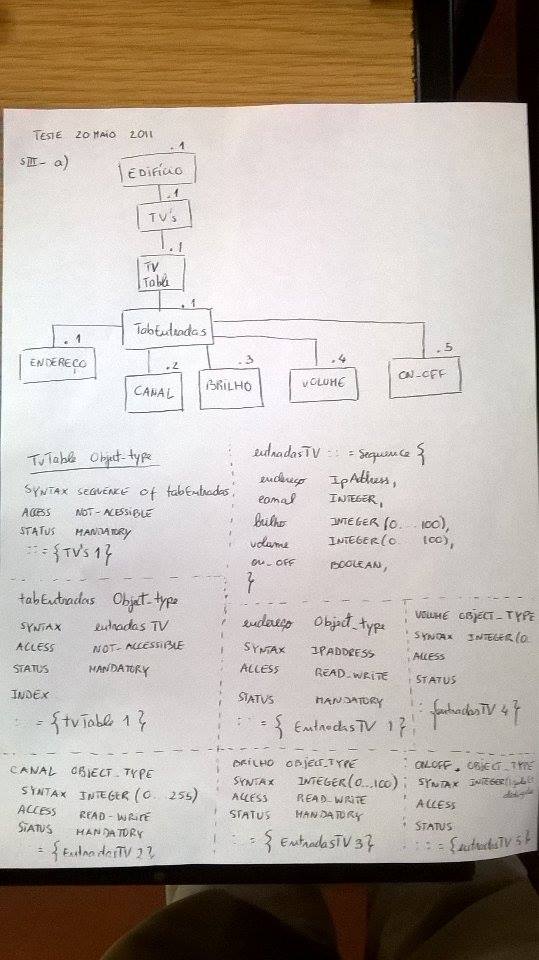 TESTE 20 MAIO 2011
SIII- a)
.1
EDIFÍCIO
.1
TV's
.1
TV
Table
.1
TabEntradas
.1
ENDEREÇO
.2
CANAL
.3
BRILHO
.4
VOLUME
.5
ON-OFF
TvTable Object-type
SYNTAX SEQUENCE OF tabEntradas
ACCESS NOT-ACESSIBLE
STATUS MANDATORY
::={TV's 1}
entradasTV ::= Sequence {
endereço IpAddress,
canal INTEGER,
brilho INTEGER(0...100),
volume INTEGER(0... 100),
on_OFF BOOLEAN,
}
tabEntradas Object_type
SYNTAX entradas TV
ACCESS NOT-ACCESSIBLE
STATUS MANDATORY
INDEX
::= {tvTable 1}
endereço Object_type
SYNTAX IPADDRESS
ACCESS READ_WRITE
STATUS MANDATORY
::= { EntradasTV 1}
VOLUME OBJECT_TYPE
SYNTAX INTEGER(0..
ACCESS
STATUS
: {entradasTV 4}
CANAL OBJECT_TYPE
SYNTAX INTEGER (0..255)
ACCESS READ-WRITE
STATUS MANDATORY
={EntradasTV 2}
BRILHO OBJECT_TYPE
SYNTAX INTEGER(0...100)
ACCESS READ_WRITE
STATUS MANDATORY
::={ EntradasTV 3}
ONOFF OBJECT_TYPE
SYNTAX INTEGER
ACCESS
STATUS
:::={entradasTV 5}